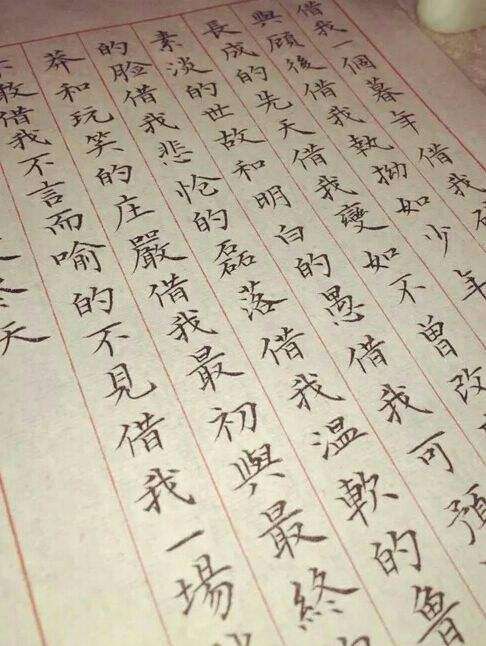 借我一個暮年借我
與顧後借我執拗如少年
長成的先天借我變如不曾改
素淡的世故和明白的愚借我可預
的臉借我悲怆的磊落借我溫軟的魯
莽和玩笑的庄嚴借我最初與最終
不敢借我不言而喻的不見借我一場
冬天